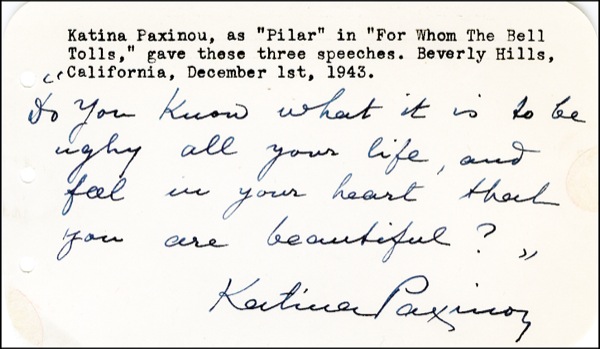 Katina Paxinou, as "Pilar" in "For Whom The Bell
Tolls," gave these three speeches. Beverly Hills,
California, December 1st, 1943.
"Do You Know what it is to be
ughy all your life, and
feel in your heart that
you are beautiful? "
Katina Paxinou